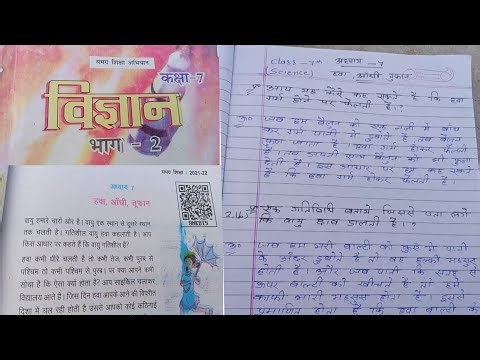 समग्र शिक्षा अभियान
कक्षा-7
विज्ञान
भाग - 2
समग्र शिक्षा - 2021-22
अध्याय 7
हवा, आँधी, तूफान
वायु हमारे चारों ओर है। वायु एक स्थान से दूसरे स्थान
तक चलती है। गतिशील वायु हवा कहलाती है। आप
किस आधार पर कहते हैं कि वायु गतिशील है?
हवा कभी धीरे चलती है तो कभी तेज, कभी पूरब से
पश्चिम तो कभी पश्चिम से पूरब। पर क्या आपने कभी
सोचा है कि ऐसा क्यों होता है? आप साइकिल चलाकर
विद्यालय आते हैं। जिस दिन हवा आपके आने की विपरीत
दिशा में चल रही होती है उससे आपको कोई कठिनाई
Class - 7th अध्याय - 7
(Science) हवा, आँधी तूफान
आप यह कैसे कह सकते हैं कि हवा
गर्म होने पर फैलती है।
उ० जब हम बैलून को एक नली में बाँध
कर गर्म पानी में डुबोते हैं तब बैलून
फूल जाता है। हवा गर्म होकर फैलती
है।
कि हवा गर्म होकर फैलती है।
एक गतिविधि बतायें जिससे पता लगे
कि वायु दाब डालती है।
उ० जब हम भरी बाल्टी को कुएँ के पानी
के अंदर डुबोते हैं तो वह हल्की महसूस
होती है। और जब पानी कि सतह से
ऊपर बाल्टी को खींचते हैं तो हमें
काफी भारी महसूस होता है। इससे
प्रमाणित होता है कि हवा बाल्टी के